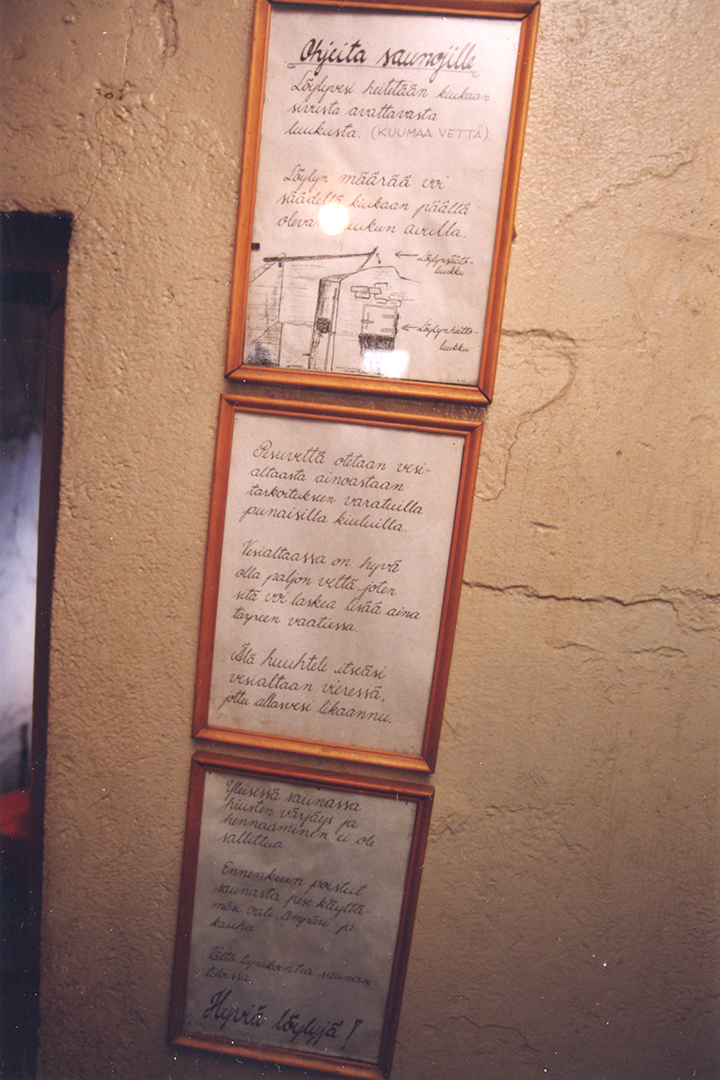 Ohjeita saunojille
Löylyvesi heitetään kiukaan
sivusta avattavasta
luukusta. (KUUMAA VETTÄ).
Löylyn määrää voi
säädellä kiukaan päältä
olevan luukun avulla.
Löylynsäätö-
luukku
Löylynheitto-
luukku
Pesuvettä otetaan vesi-
altaasta ainoastaan
tarkoitukseen varatuilla
punaisilla kiuluilla.
Vesialtaassa on hyvä
olla paljon vettä, joten
sitä voi laskea lisää aina
tarpeen vaatiessa.
Älä huuhtele itseäsi
vesialtaan vieressä,
jottei allasvesi likaannu.
Yleisessä saunassa
hiusten värjäys ja
hennaaminen ei ole
sallittua.
Ennenkuin poistut
saunasta pese käyttä-
mäsi vati, ämpäri ja
kauha
Vältä tupakointia saunan
tiloissa.
Hyviä löylyjä!